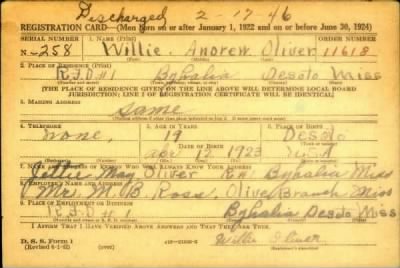 Discharged 2-17-46
REGISTRATION CARD—(Men born on or after January 1, 1922 and on or before June 30, 1924)
SERIAL NUMBER 1. NAME (Print) ORDER NUMBER
N-258 Willie Andrew Oliver 11618
(First) (Middle) (Last)
2. PLACE OF RESIDENCE (Print)
R.F.D #1 Byhalia Desoto Miss
[THE PLACE OF RESIDENCE GIVEN ON THE LINE ABOVE WILL DETERMINE LOCAL BOARD
JURISDICTION; LINE 2 OF REGISTRATION CERTIFICATE WILL BE IDENTICAL]
3. MAILING ADDRESS
Same
4. TELEPHONE 5. AGE IN YEARS 6. PLACE OF BIRTH
none 19 Desoto
DATE OF BIRTH
Apr 12 1923
7. NAME AND ADDRESS OF PERSON WHO WILL ALWAYS KNOW YOUR ADDRESS
May Oliver Byhalia Miss
8. EMPLOYER'S NAME AND ADDRESS
Mr. M. B. Ross, Olive Branch Miss
9. PLACE OF EMPLOYMENT OR BUSINESS
R.F.D #1 Byhalia Desoto Miss
I AFFIRM THAT I HAVE VERIFIED ABOVE ANSWERS AND THAT THEY ARE TRUE.
D. S. S. Form 1 Willie Oliver